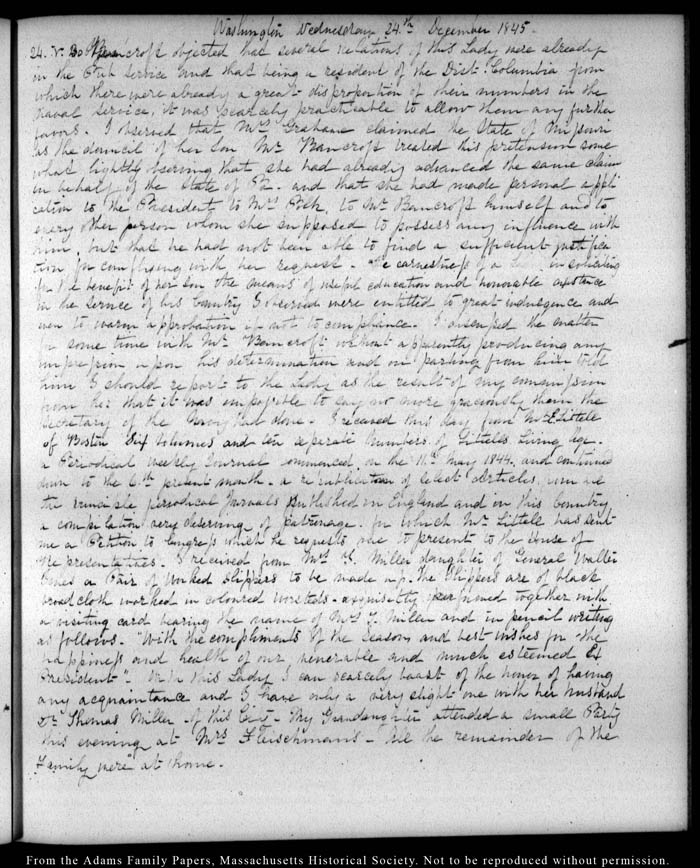 Washington Wednesday 24.th December 1845.
24. V. 30 Bancroft objected that several relations of this Lady were already
in the Pub. service and that being a resident of the Dist. Columbia from
which there were already a great disproportion of their numbers in the
naval service, it was scarcely practicable to allow them any further
favors. I observed that Mrs Grahame claimed the State of Missouri
as the domicil of her Son Mr Bancroft treated this pretension some
what lightly observing that she had already advanced the same claim
in behalf of the State of Pa. and that she had made personal appli
cation to the President to Mrs Polk, to Mr Bancroft himself and to
every other person whom she supposed to possess any influence with
him, but that he had not been able to find a sufficient justifica
tion for complying with her request. The earnestness of a in soliciting
for the benefit of her son the means of useful education and honorable existence
in the service of his Country I observed were entitled to great indulgence and
even to warm approbation if not to compliance. I discussed the matter
for some time with Mr Bancroft without apparently producing any
impression upon his determination and on parting from him told
him I should report to the Lady as the result of my commission
from her that it was impossible to say no more graciously than the
Secretary of the Navy had done. I received this day from Mr E. Littell
of Boston Six Volumes and ten separate numbers of Littells Living Age.
a Periodical weekly Journal commenced on the 11th May 1844. and continued
down to the 6th present month. a republication of select Articles, from all
the principle periodical Journals published in England and in this Country
a compilation very deserving of patronage. for which Mr Littell has sent
me a Petition to Congress which he requests me to present to the House of
Representatives. I received from Mrs T. Miller daughter of General Walter
Jones a Pair of worked Slippers to be made up. The Slippers are of black
broadcloth worked in coloured worsteds. exquisitely perfumed together with
a visiting card bearing the name of Mrs T. Miller and in pencil writing
as follows. "With the compliments of the Season and best wishes for the
happiness and health of our venerable and much esteemed Ex
President". With this Lady I can scarcely boast of the honor of having
any acquaintance and I have only a very slight one with her husband
Dr Thomas Miller of this City. My Grandaughter attended a small Party
this evening at Mrs Fleischman's. All the remainder of the
Family were at home.
From the Adams Family Papers, Massachusetts Historical Society. Not to be reproduced without permission.